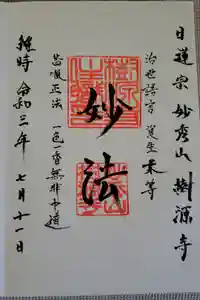 日蓮宗 妙秀山 樹源寺
治世語言 資生業等
妙法
皆順正法 一色一香無非中道
維時 令和三年 七月十一日